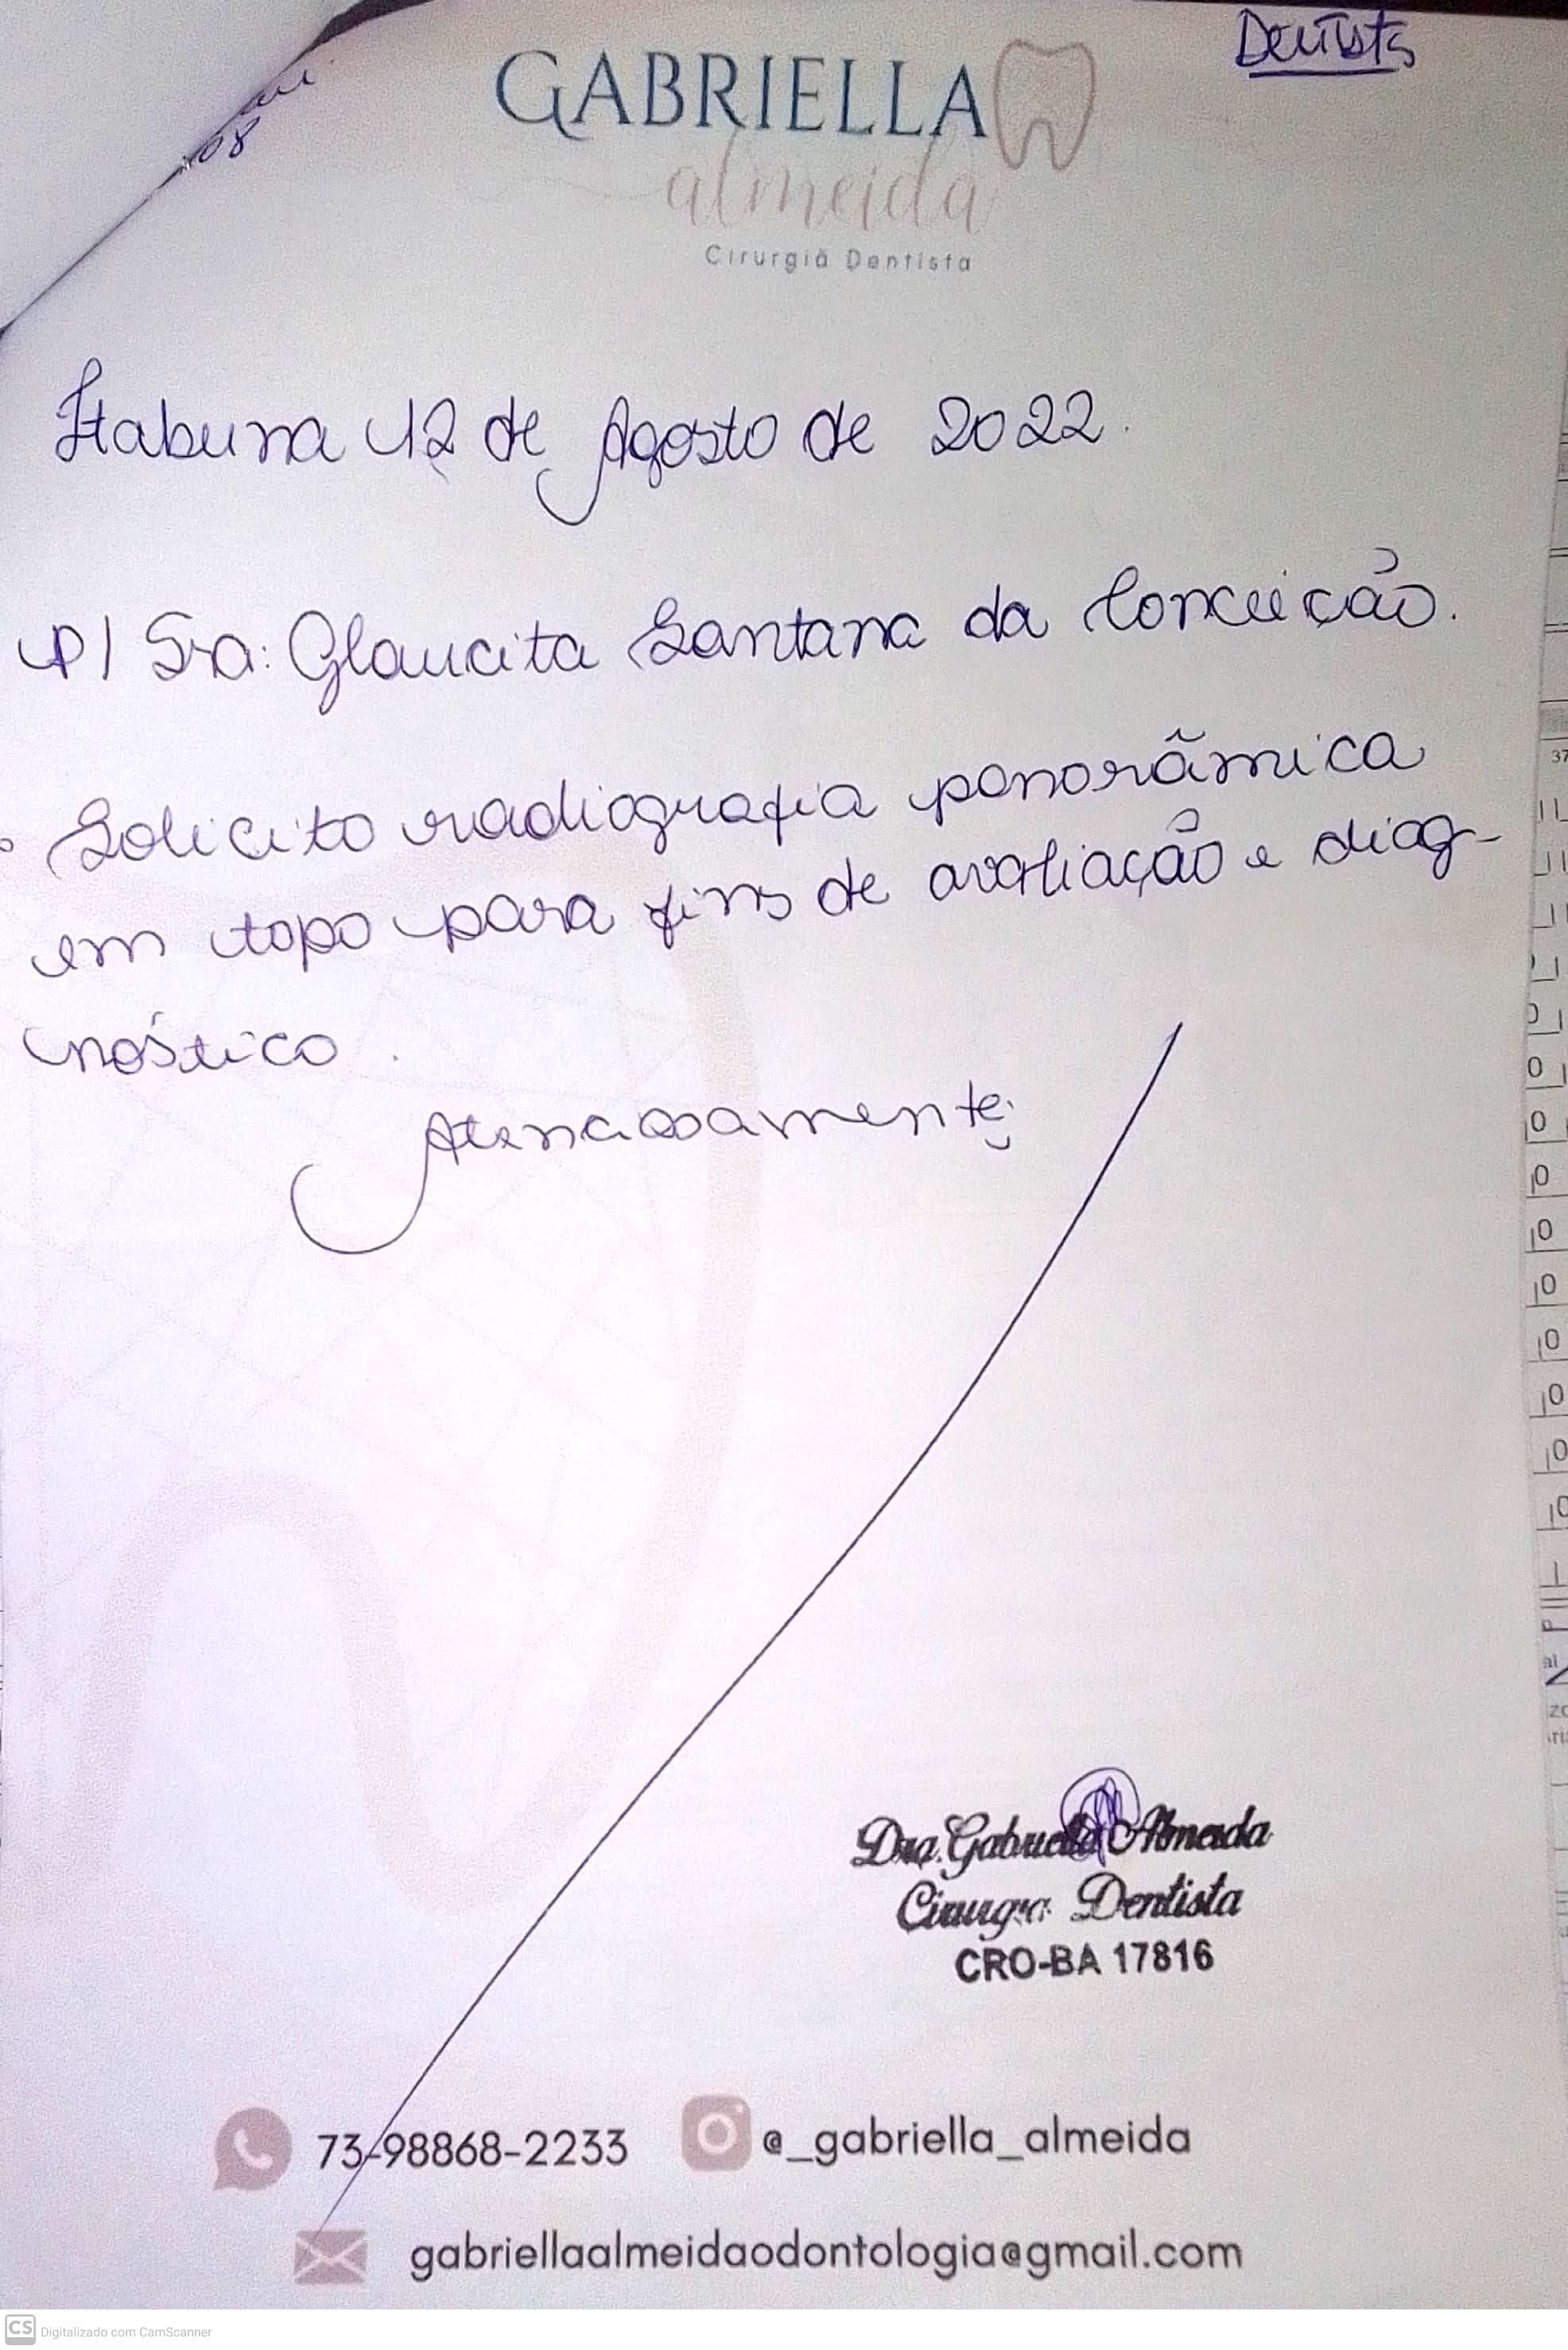 Dentista
GABRIELLA
almeida
Cirurgiã Dentista
08
Itabuna 12 de Agosto de 2022.
P/ Sra: Glaucita Santana da Conceição.
Solicito radiografia panorâmica
em topo para fins de avaliação e diag-
nóstico.
Atenciosamente;
Dra. Gabriella Almeida
Cirurgiã Dentista
CRO-BA 17816
73-98868-2233 @_gabriella_almeida
gabriellaalmeidaodontologia@gmail.com
CS Digitalizado com CamScanner